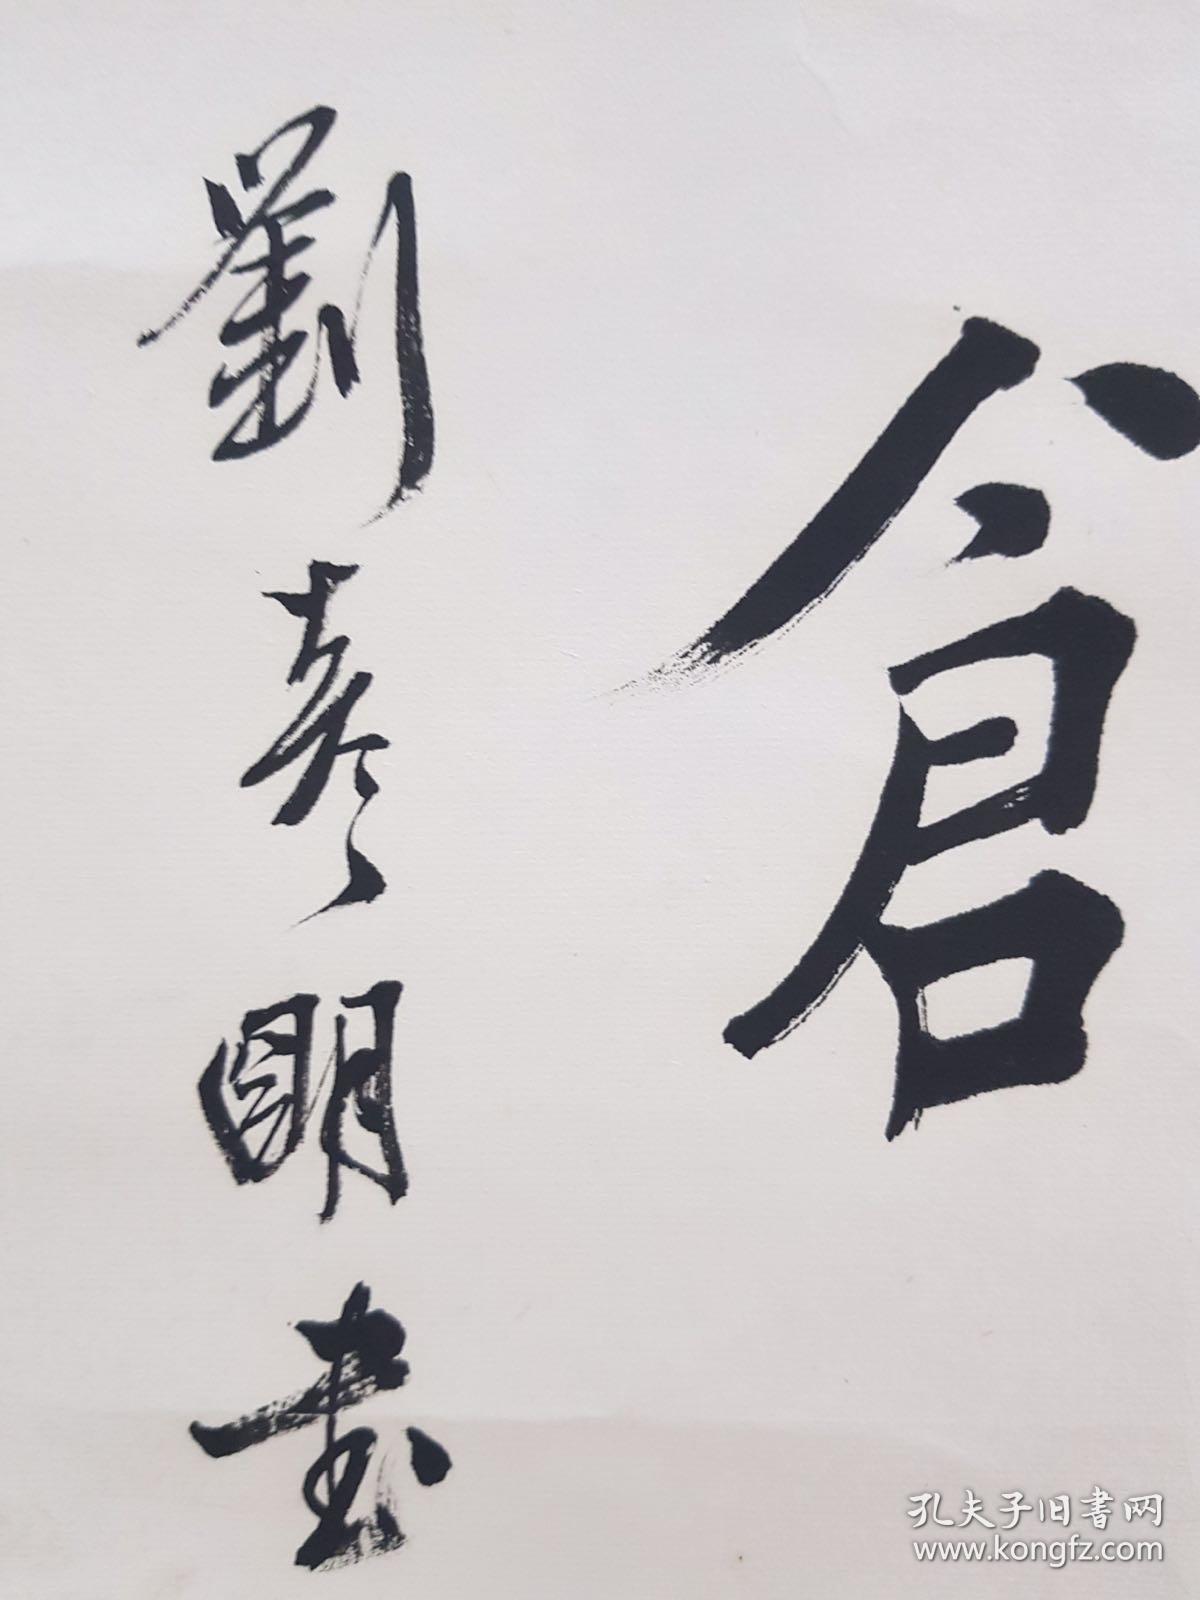 倉
劉彦明書
孔夫子旧書网
www.kongfz.com